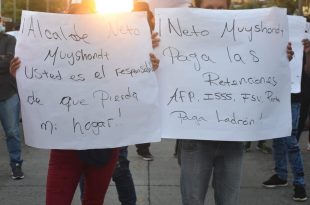 ¡Alcalde Neto
Muyshondt
Usted es el responsable
de que Pierda
mi hogar!
¡Neto Muyshondt
Paga las
Retenciones
AFP, ISSS, FSV Renta
Paga Ladrón!